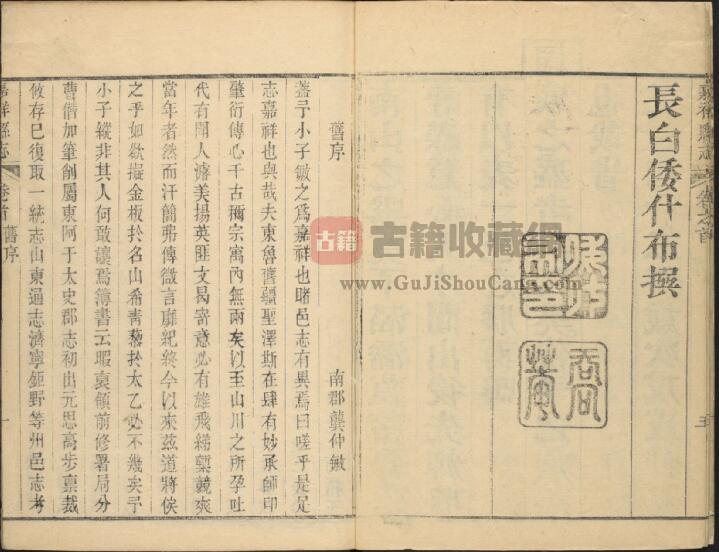 長白倭什布撰
嘉祥縣志
卷之首
舊序
南郡龔仲敏
蓋予小子敏之爲嘉祥也睹邑志有異焉曰嗟乎是足
志嘉祥也與哉夫東魯舊疆聖澤斯在肆有妙承師印
肇衍傳心千古彌宗寓內無兩矣以至山川之所孕吐
代有聞人濬美揚英匪文曷寄意必有雄飛綈槧競爽
當年者然而汗簡弗傳微言靡紀終今以來茲道將俟
之乎如欲擬金板於名山希青藜於太乙必不幾矣予
小子縱非其人何敢壞焉簿書云暇裒領前修署局分
曹僭加筆削屬東阿于太史郡志初出元思高步禀裁
攸存已復取一統志山東通志濟寧鉅野等州邑志考
嘉祥縣志
卷首
舊序
一
古籍
古籍收藏網
www.GuJiShouCang.com